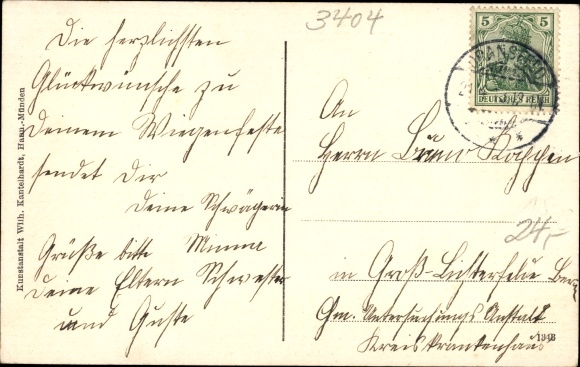 3404
Die herzlichsten
Glückwünsche zu
Deinem Wiegenfeste
sendet Dir
Deine Schwägerin
Minna
Grüße bitte
Deine Eltern Schwester
und Guste
Kunstanstalt Wilh. Kantelhardt, Hann.-Münden
5 5
DEUTSCHES REICH
An
Herrn
24,-
in Groß-Lichterfelde
Gm. Untersuchungs Anstalt
Kreiskrankenhaus
1343